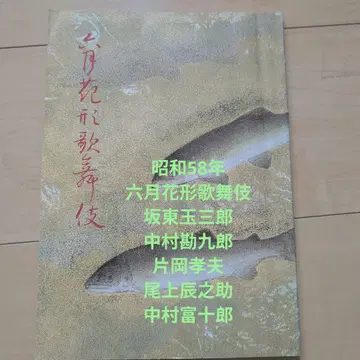 六月花形歌舞伎
昭和58年
六月花形歌舞伎
坂東玉三郎
中村勘九郎
片岡孝夫
尾上辰之助
中村富十郎